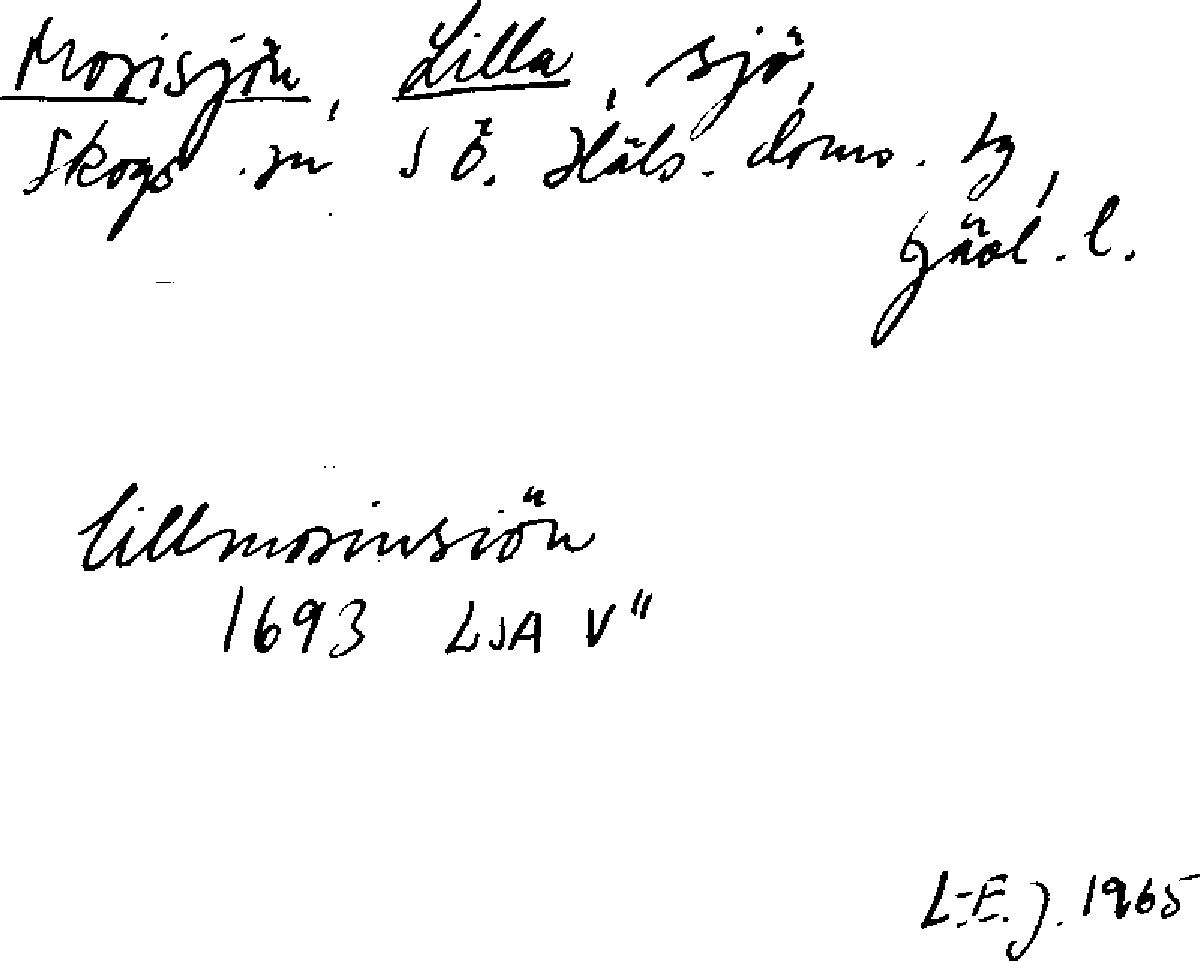 Morisjön, Lilla, sjö,
Skogs sn S Ö. Häls. doms. tg,
Gävl. l.
lillmorinsiön
1693 LSA V"
L-E. J. 1965